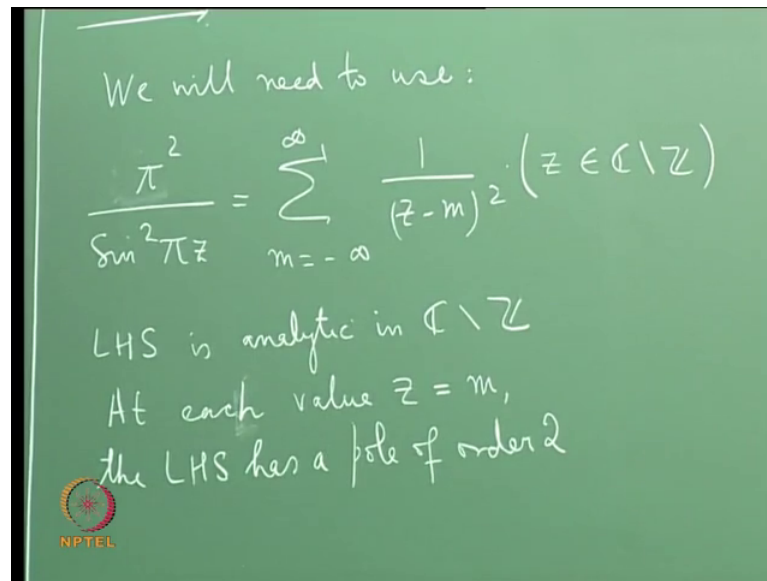 We will need to use:
π² / Sin²πz = ∑_{m=-∞}^{∞} 1/(z-m)² . (z ∈ ℂ\ℤ)
LHS is analytic in ℂ\ℤ
At each value z = m,
the LHS has a pole of order 2
NPTEL